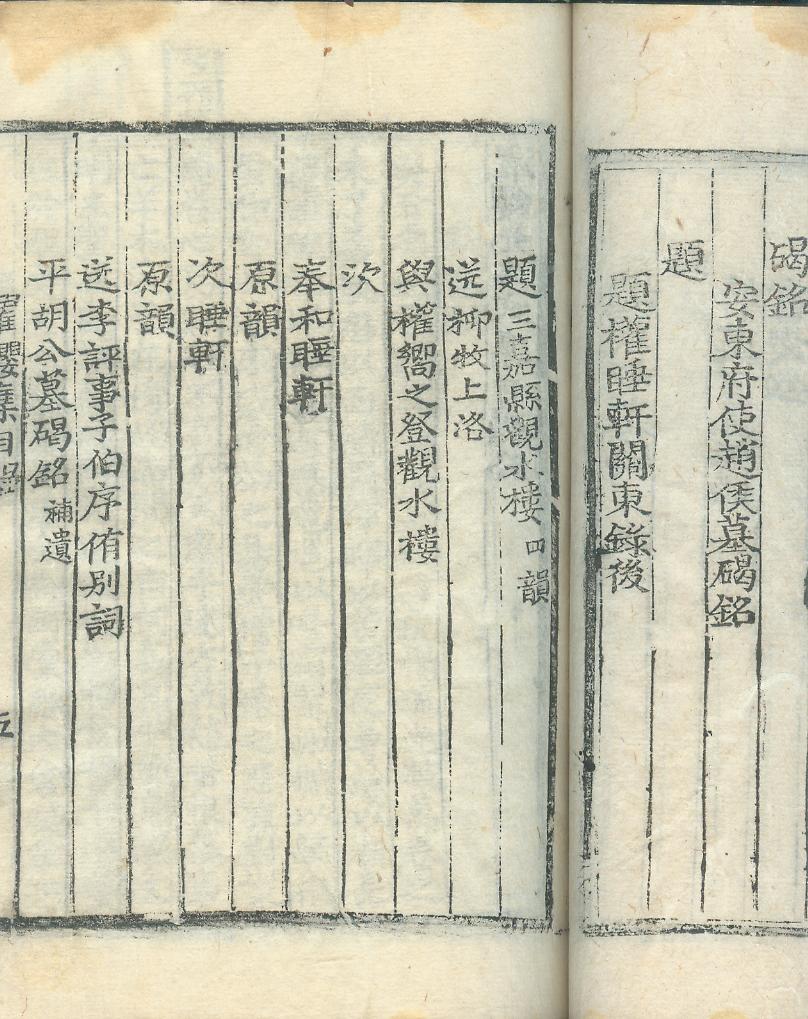 碣銘
安東府使趙侯墓碣銘
題
題權睡軒關東錄後
題三嘉縣觀水樓四韻
送柳牧上洛
與權嚮之登觀水樓
次
奉和睡軒
原韻
次睡軒
原韻
送李評事子伯序侑別詞
平胡公墓碣銘 補遺
濯纓集目錄
五